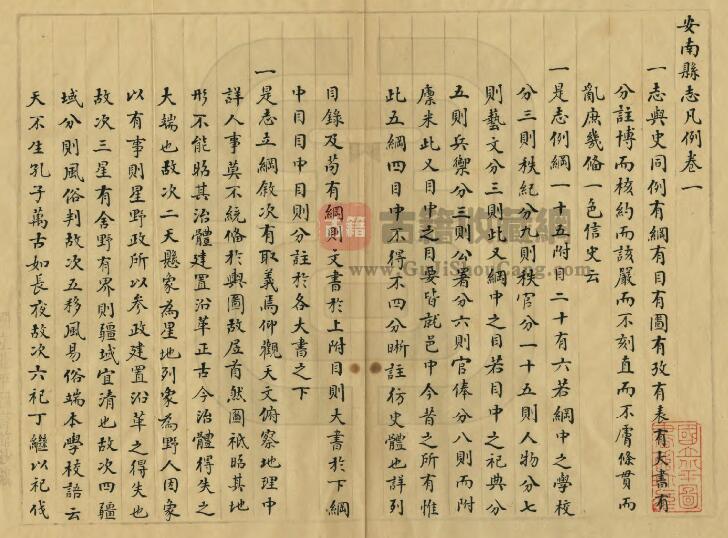 安南縣志凡例卷一
一志與史同例有綱有目有圖有攷有表有大書有
分註博而核約而該嚴而不刻直而不膚條貫而不
亂庶幾備一邑信史云
一是志例綱一十五附目二十有六若綱中之學校
分三則秩紀分九則秩官分一十五則人物分七
則藝文分三則此又綱中之目若目中之祀典分
五則兵禦分三則公署分六則官俸分八則而附
廩米此又目中之目要皆就邑中今昔之所有惟
此五綱四目中不得不四分晰註彷史體也詳列
目錄及苟有綱則文書於上附目則大書於下綱
中目目中目則分註於各大書之下
一是志立綱敘次有取義焉仰觀天文俯察地理中
詳人事莫不統備於輿圖故居首然圖祇昭其地
形不能昭其治體建置沿革正古今治體得失之
大端也故次二天懸象為星地列象為野人因象
以有事則星野政所以參政建置沿革之得失也
故次三星有舍野有界則疆域宜清也故次四疆
域分則風俗判故次五移風易俗端本學校語云
天不生孔子萬古如長夜故次六祀丁繼以祀伐
古籍
古籍收藏網
www.GuJiShouCang.com